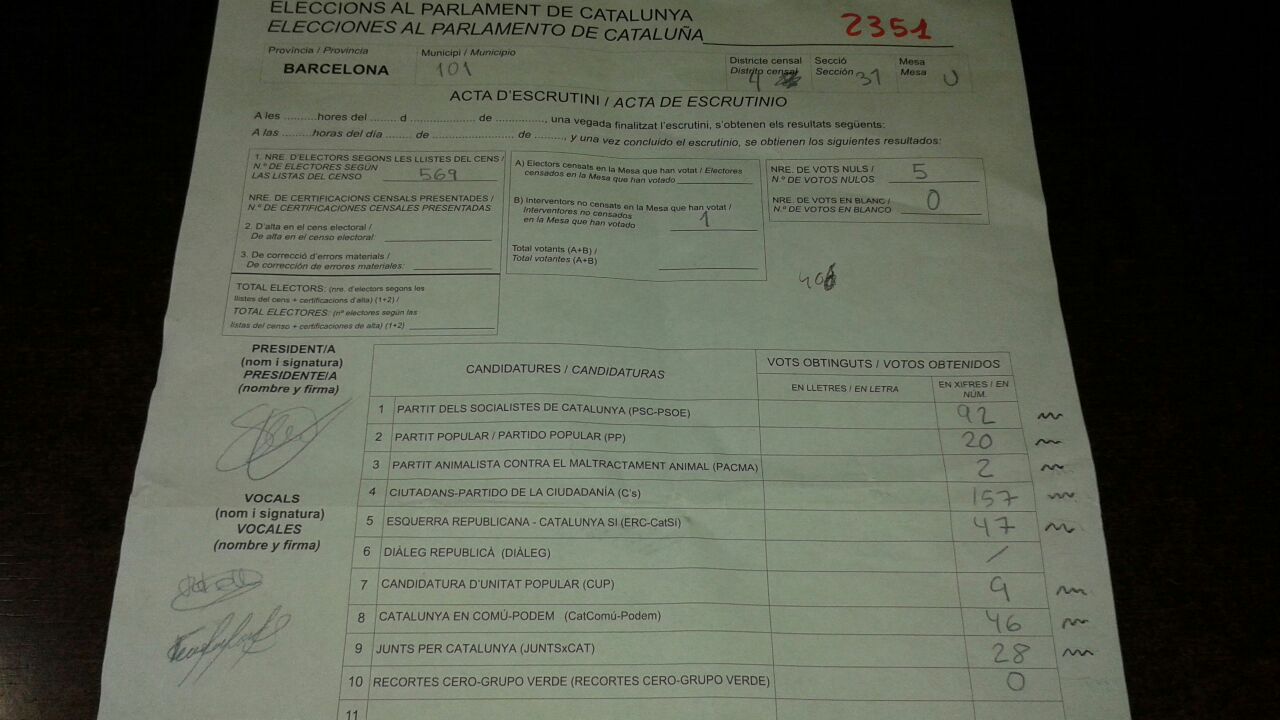 ELECCIONS AL PARLAMENT DE CATALUNYA
ELECCIONES AL PARLAMENTO DE CATALUÑA
2351
Província / Provincia
BARCELONA
Municipi / Municipio
101
Districte censal
Distrito censal
4
Secció
Sección
31
Mesa
Mesa
U
ACTA D'ESCRUTINI / ACTA DE ESCRUTINIO
A les ..........hores del ...... d .................... de ............, una vegada finalitzat l'escrutini, s'obtenen els resultats següents:
A las .........horas del día ...... de ........................ de ........., y una vez concluido el escrutinio, se obtienen los siguientes resultados:
1. NRE. D'ELECTORS SEGONS LES LLISTES DEL CENS /
N.º DE ELECTORES SEGÚN
LAS LISTAS DEL CENSO
569
NRE. DE CERTIFICACIONS CENSALS PRESENTADES /
N.º DE CERTIFICACIONES CENSALES PRESENTADAS
2. D'alta en el cens electoral /
De alta en el censo electoral:
3. De correcció d'errors materials /
De corrección de errores materiales:
TOTAL ELECTORS: (nre. d'electors segons les
llistes del cens + certificacions d'alta) (1+2) /
TOTAL ELECTORES: (nº electores según las
listas del censo + certificaciones de alta) (1+2)
A) Electors censats en la Mesa que han votat / Electores
censados en la Mesa que han votado
B) Interventors no censats en la Mesa que han votat /
Interventores no censados
en la Mesa que han votado
1
Total votants (A+B) /
Total votantes (A+B)
NRE. DE VOTS NULS /
N.º DE VOTOS NULOS
5
NRE. DE VOTS EN BLANC /
N.º DE VOTOS EN BLANCO
0
PRESIDENT/A
(nom i signatura)
PRESIDENTE/A
(nombre y firma)
VOCALS
(nom i signatura)
VOCALES
(nombre y firma)
CANDIDATURES / CANDIDATURAS
VOTS OBTINGUTS / VOTOS OBTENIDOS
EN LLETRES / EN LETRA
EN XIFRES / EN
NÚM.
1 PARTIT DELS SOCIALISTES DE CATALUNYA (PSC-PSOE) 92
2 PARTIT POPULAR / PARTIDO POPULAR (PP) 20
3 PARTIT ANIMALISTA CONTRA EL MALTRACTAMENT ANIMAL (PACMA) 2
4 CIUTADANS-PARTIDO DE LA CIUDADANÍA (C's) 157
5 ESQUERRA REPUBLICANA - CATALUNYA SÍ (ERC-CatSí) 47
6 DIÀLEG REPUBLICÀ (DIÀLEG) /
7 CANDIDATURA D'UNITAT POPULAR (CUP) 9
8 CATALUNYA EN COMÚ-PODEM (CatComú-Podem) 46
9 JUNTS PER CATALUNYA (JUNTSxCAT) 28
10 RECORTES CERO-GRUPO VERDE (RECORTES CERO-GRUPO VERDE) 0
11